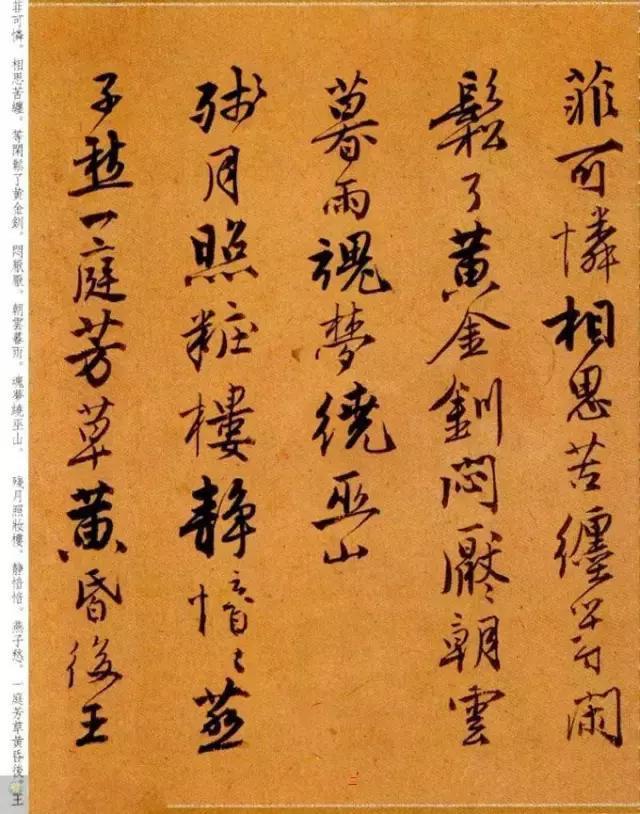 菲可憐相思苦纏等閑
鬆了黄金釧悶厭厭朝雲
暮雨魂夢繞巫山
残月照粧樓静愔愔燕
子愁一庭芳草黄昏後王
菲可憐。相思苦纏。等閑鬆了黃金釧。悶厭厭。朝雲暮雨。魂夢繞巫山。 殘月照妝樓。靜愔愔。燕子愁。一庭芳草黃昏後。王
二